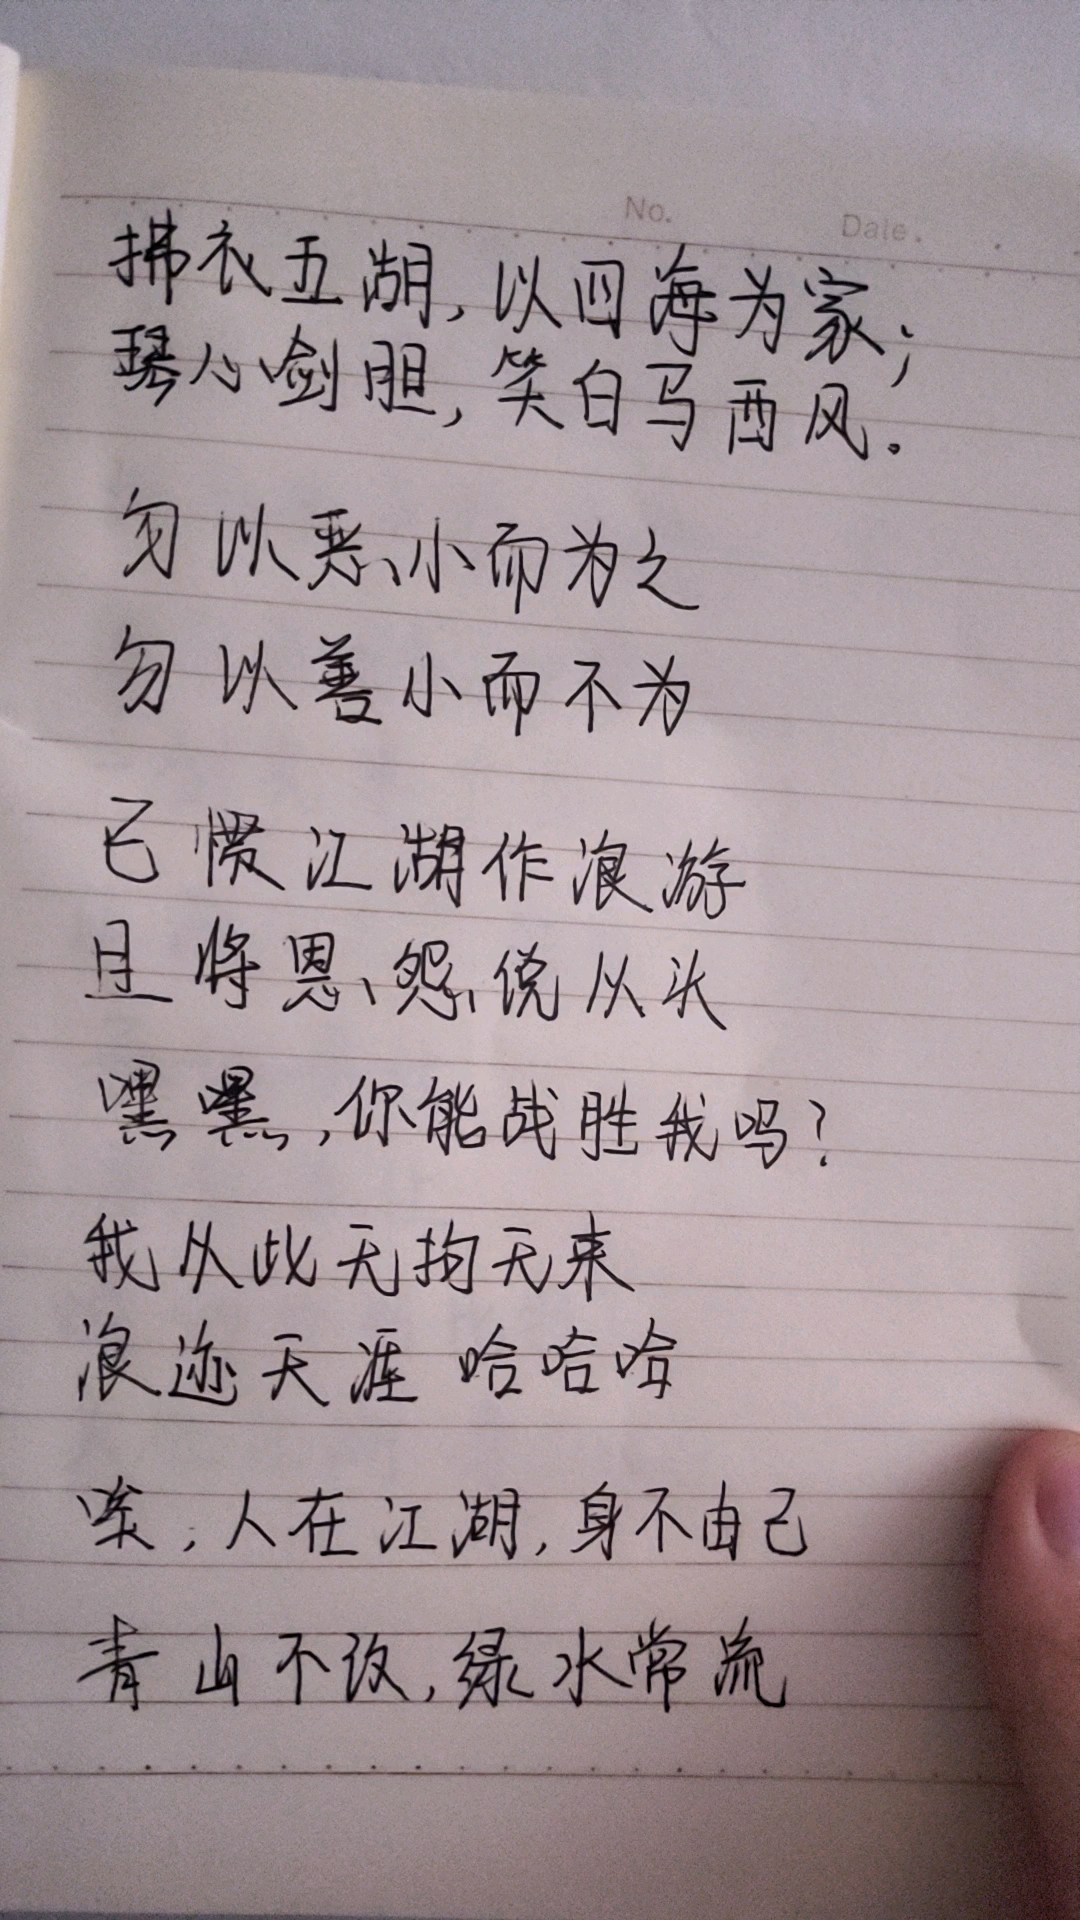 No. Date.
拂衣五湖,以四海为家;
琴心剑胆,笑白马西风。
勿以恶小而为之
勿以善小而不为
已惯江湖作浪游
且将恩怨说从头
嘿嘿,你能战胜我吗?
我从此无拘无束
浪迹天涯 哈哈哈
唉,人在江湖,身不由己
青山不改,绿水常流